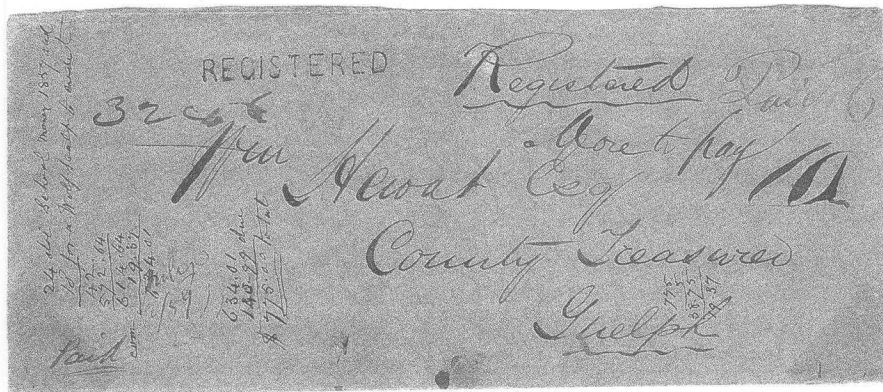 REGISTERED
Registered
Paid 6
32 cts
More to pay
10
Wm Hewat Esq
County Treasurer
Guelph
24 dol School money 1857 and
10 for a Wolf Scalp
592.64
614.64
19.37
634.01
634.01
140.99 due
$ 775.00 total
Paid
775
3875
19.37